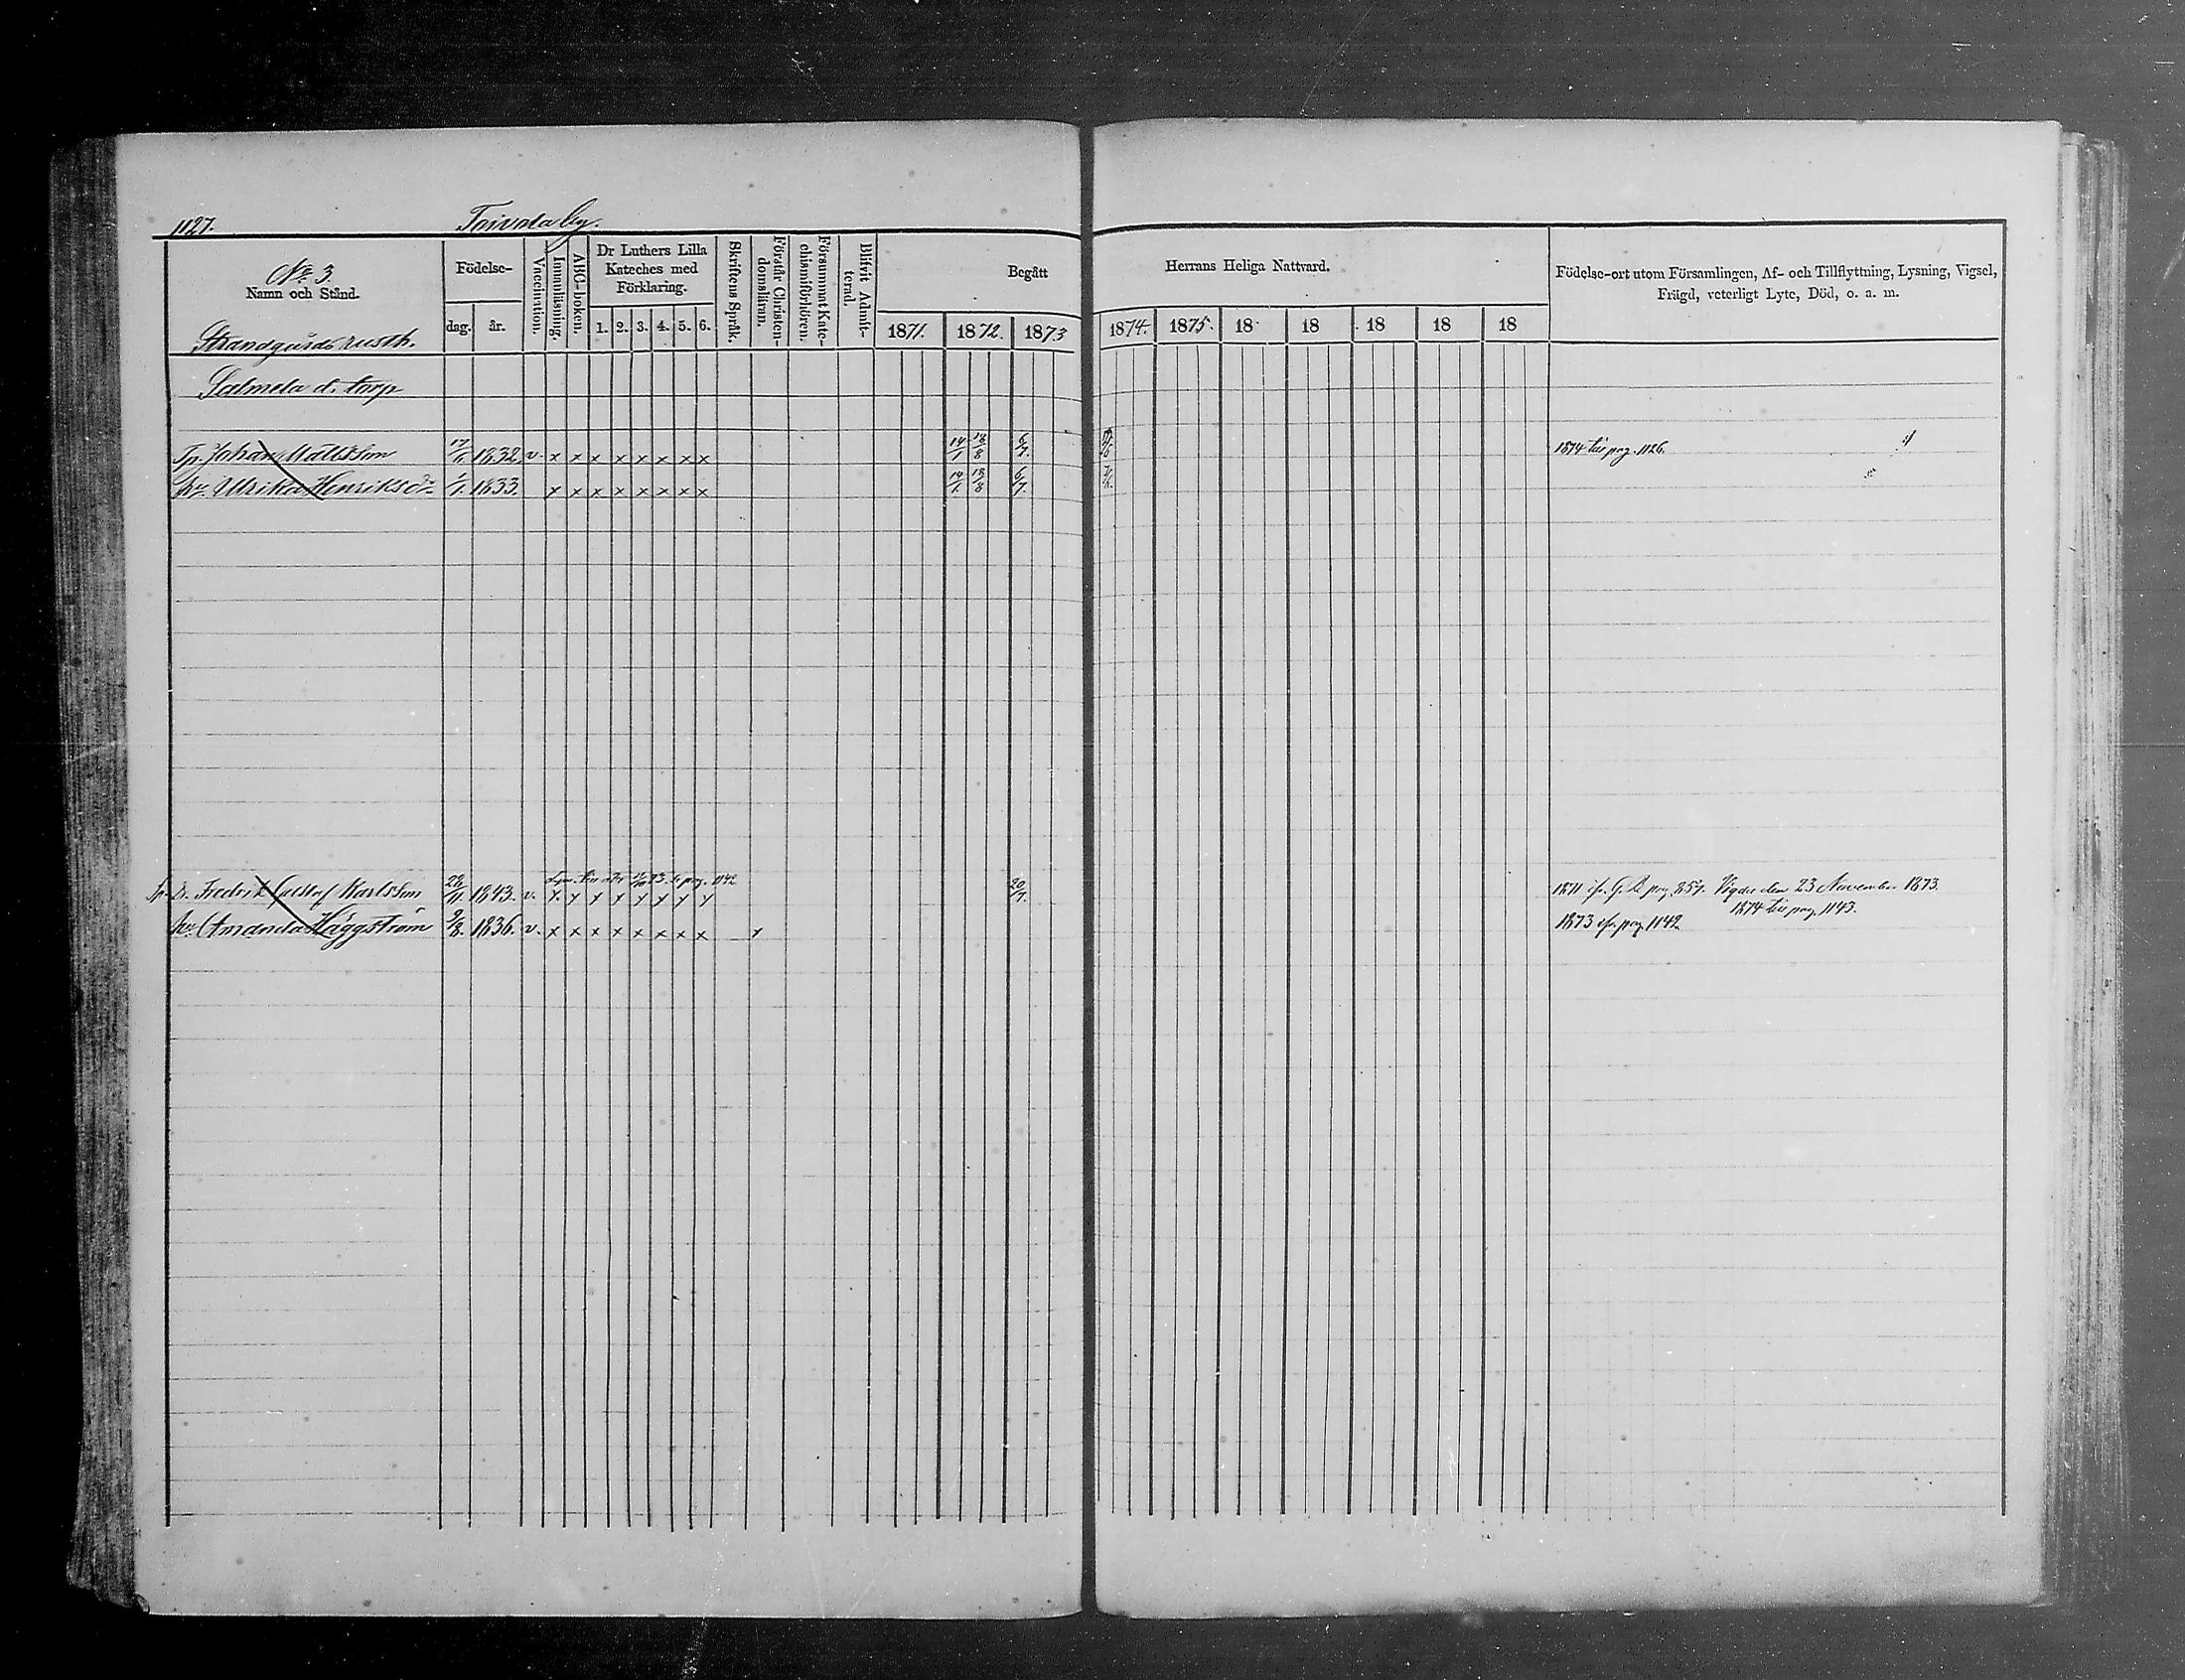 1127. Toivola by.
No 3.
Namn och Stånd.
Strandgårds rusth.
Födelse-
dag. år.
Vaccination.
Innanläsning.
ABC-boken.
Dr Luthers Lilla
Kateches med
Förklaring.
1. 2. 3. 4. 5. 6.
Skriftens Språk.
Förstår Christen-
domsläran.
Försummat Kate-
chismiförhören.
Blifvit Admit-
terad.
Begått
1871. 1872. 1873
Herrans Heliga Nattvard.
1874. 1875. 18 18 18 18 18
Födelse-ort utom Församlingen, Af- och Tillflyttning, Lysning, Vigsel,
Frägd, veterligt Lyte, Död, o. a. m.
Salmela d. torp
Tp. Johan Mattsson 17/11 1832 v. x x x x x x x x 14/1 18/8 6/7. 1874 till pag. 1126.
hu. Ulrika Henriksdr 1/1. 1833. x x x x x x x x 14/1. 18/8 6/7.
pag. 1142
Tp. Dr. Fredrik Gustaf Karlsson 28/11. 1843. v. x x x x x x x x 20/7. 1871 ifr. G. B. pag. 857. Vigde den 23 November 1873.
1874 till pag. 1143.
hu. Amanda Häggström 9/8. 1836. v. x x x x x x x x x 1873 ifr. pag. 1142